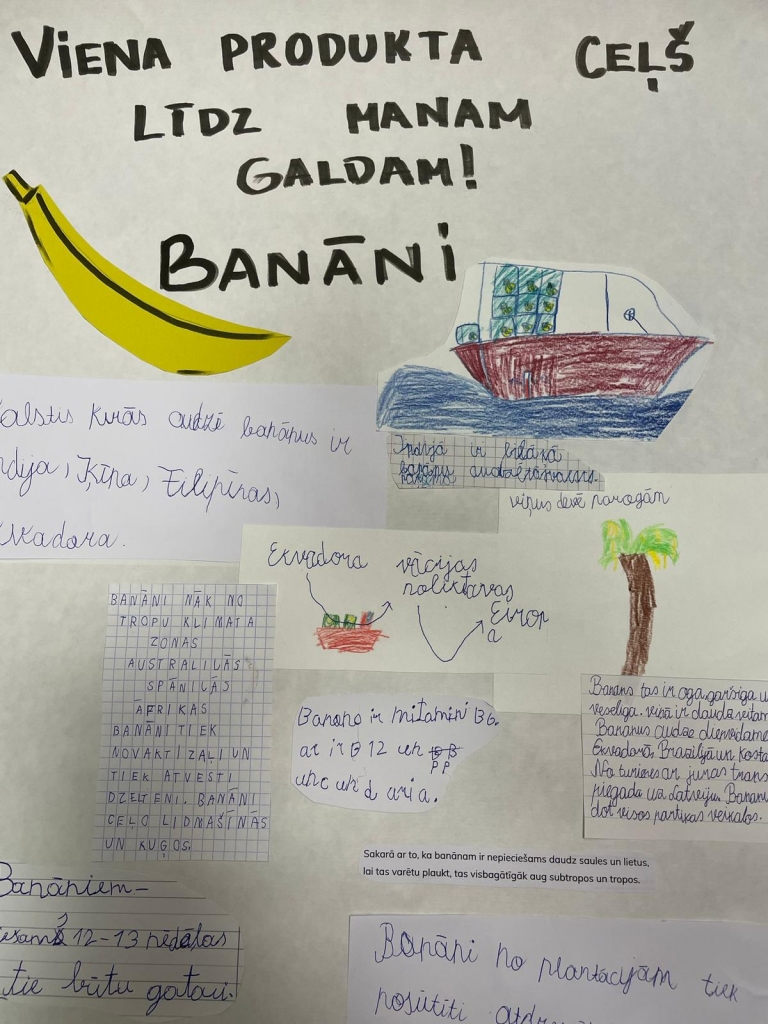 VIENA PRODUKTA CEĻŠ
LĪDZ MANAM
GALDAM!
BANĀNI
alstis kurās audzē banānus ir
ndija, Ķīna, Filipīnas,
kvadora.
Indijā ir lielākā
banānu audzētāvalsts.
viņus devē parogām
Ekvadora
vācijas
noliktavas
Eirop
a
BANĀNI NĀK NO
TROPU KLIMATA
ZONAS
AUSTRALIJĀS
SPĀNIJĀS
ĀFRIKAS
BANĀNI TIEK
NOVĀKTI ZAĻI UN
TIEK ATVESTI
DZELTENI. BANĀNI
CEĻO LIDMAŠĪNĀS
UN KUĢOS.
Banāno ir mitamini B6.
ar ir B 12 un
PP
un c un d un a.
Banāns tas ir oga, garšīga u
veselīga. viņā ir daudz vitam
Banānus audzē dienvidame
Ekvadorā, Brazīlijā un Kosta
No turienes ar jūras trans
piegādā uz Latviju. Banānu
dot visos pārtikas veikalos.
Sakarā ar to, ka banānam ir nepieciešams daudz saules un lietus,
lai tas varētu plaukt, tas visbagātīgāk aug subtropos un tropos.
Banāniem-
iešams 12-13 nedēļas
tie būtu gatavi.
Banāni no plantācijām tiek
nosūtīti